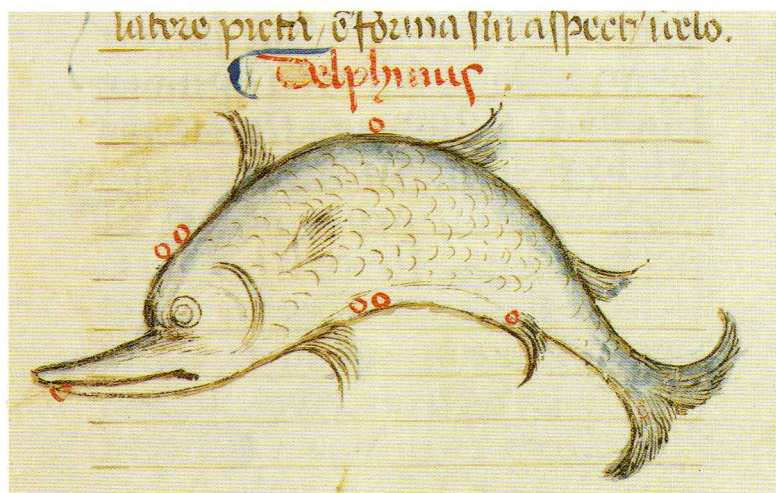 latere picta, ē forma sui aspect, icelo.
Delphinus